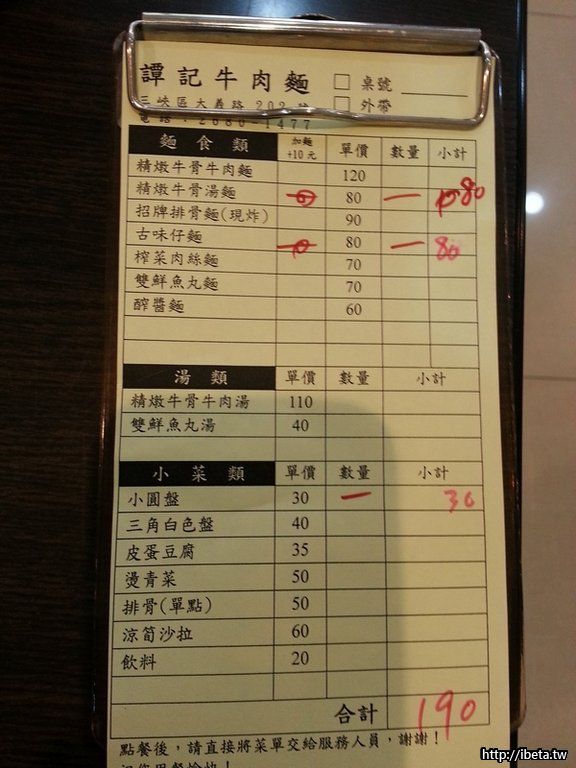 譚記牛肉麵 □ 桌號
三峽區大義路202號 □ 外帶
電話:2680-1477
麵食類 加麵+10元 單價 數量 小計
精燉牛骨牛肉麵 120
精燉牛骨湯麵 80 一 80
招牌排骨麵(現炸) 90
古味仔麵 80 一 80
榨菜肉絲麵 70
雙鮮魚丸麵 70
酢醬麵 60
湯類 單價 數量 小計
精燉牛骨牛肉湯 110
雙鮮魚丸湯 40
小菜類 單價 數量 小計
小圓盤 30 一 30
三角白色盤 40
皮蛋豆腐 35
燙青菜 50
排骨(單點) 50
涼筍沙拉 60
飲料 20
合計 190
點餐後,請直接將菜單交給服務人員,謝謝!
祝您用餐愉快!
http://ibeta.tw